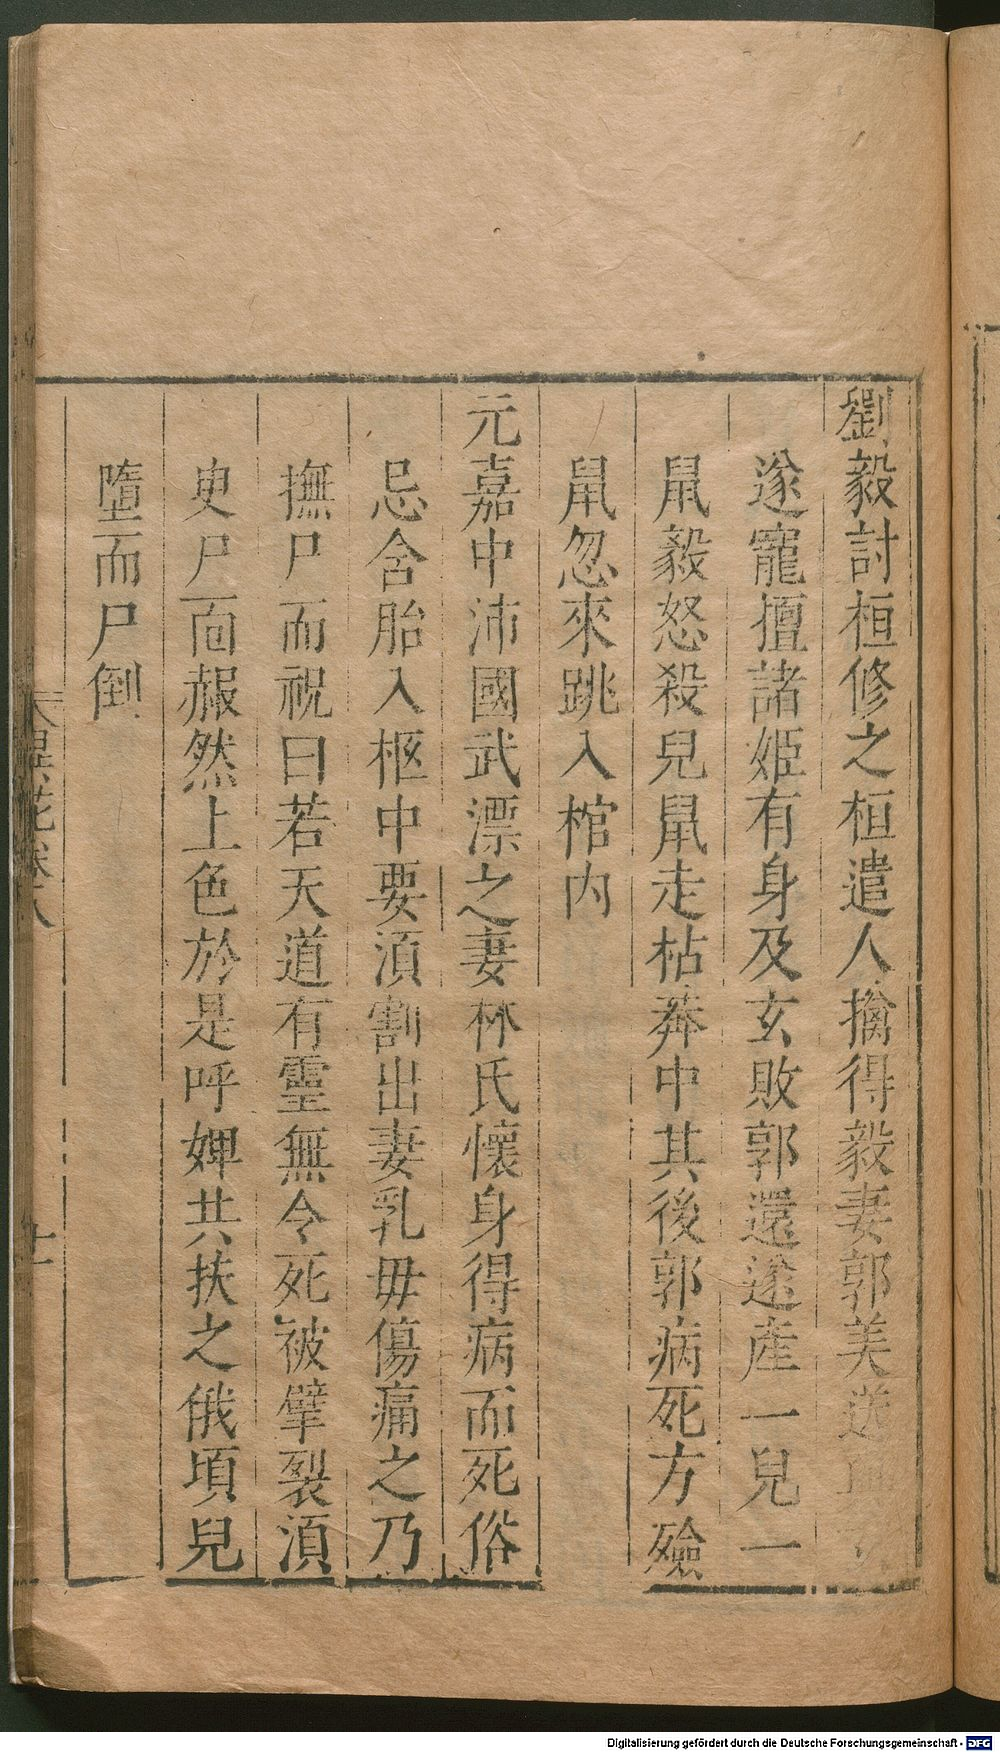 劉毅討桓修之桓遣人擒得毅妻郭美送與玄
遂寵擅諸姬有身及玄敗郭還遂產一兒一
鼠毅怒殺兒鼠走枯莽中其後郭病死方殮
鼠忽來跳入棺內
元嘉中沛國武漂之妻林氏懷身得病而死俗
忌含胎入柩中要須割出妻乳母傷痛之乃
撫尸而祝曰若天道有靈無令死被擘裂須
臾尸面赧然上色於是呼婢共扶之俄頃兒
墮而尸倒
Digitalisierung gefördert durch die Deutsche Forschungsgemeinschaft - DFG